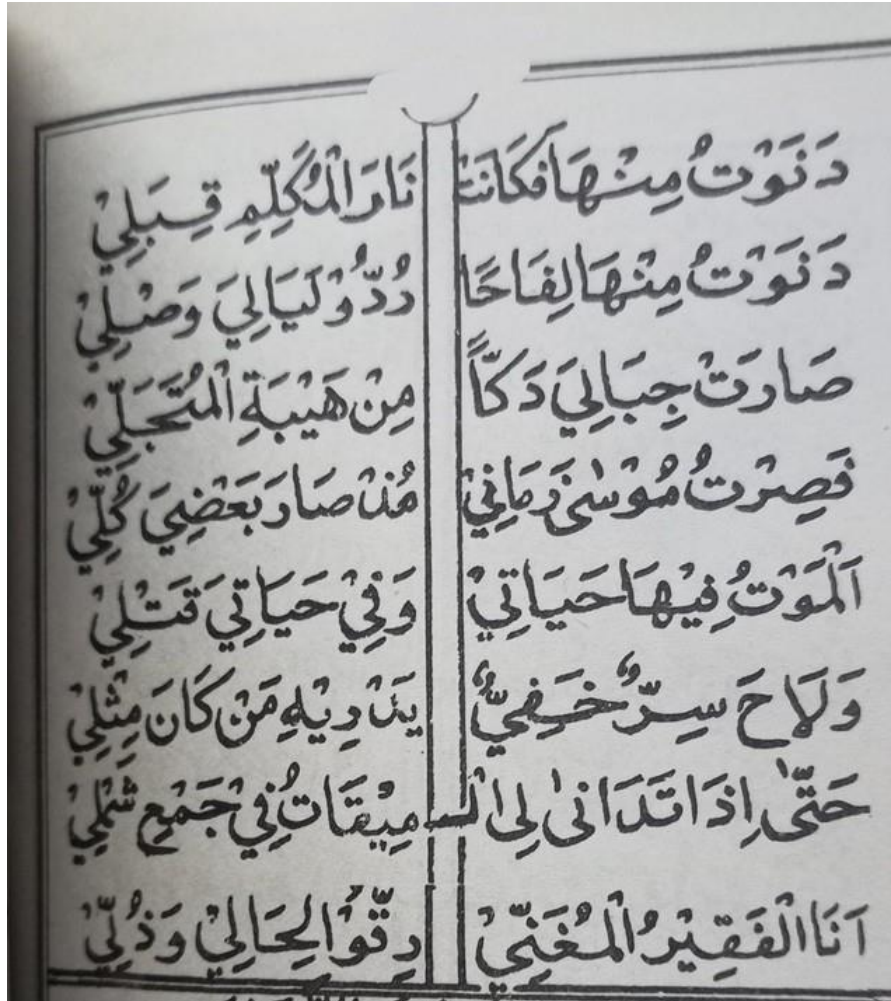 دَنَوْتُ مِنْهَا فَكَانَتْ نَارَ الْمُكَلِّمِ قِبَلِيْ
دَنَوْتُ مِنْهَا لِفَاحًا رُدُّوْ لَيَالِيَ وَصْلِيْ
صَارَتْ جِبَالِيَ دَكًّا مِنْ هَيْبَةِ الْمُتَجَلِّيْ
فَصِرْتُ مُوْسٰى زَمَانِيْ مُذْ صَارَ بَعْضِيَ كُلِّيْ
اَلْمَوْتُ فِيْهَا حَيَاتِيْ وَفِيْ حَيَاتِيَ قَتْلِيْ
وَلَاحَ سِرٌّ خَفِيٌّ يَدْرِيْهِ مَنْ كَانَ مِثْلِيْ
حَتّٰى اِذَا تَدَانٰى لِى الْـمِيْقَاتُ فِيْ جَمْعِ شَمْلِيْ
اَنَا الْفَقِيْرُ الْمُغَنِّيْ رِقُّوْا لِحَالِيْ وَذُلِّيْ